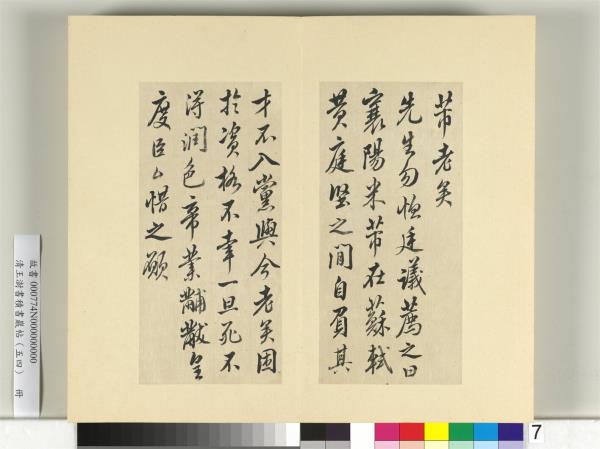 芾老矣
先生勿恤廷議薦之曰
襄陽米芾在蘇軾
黄庭堅之間自負其
才不入黨與今老矣困
於資格不幸一旦死不
得潤色帝業黼黻皇
度臣亾惜之願
故書 000774N000000000
清王澍書積書巖帖（五四） 冊
7